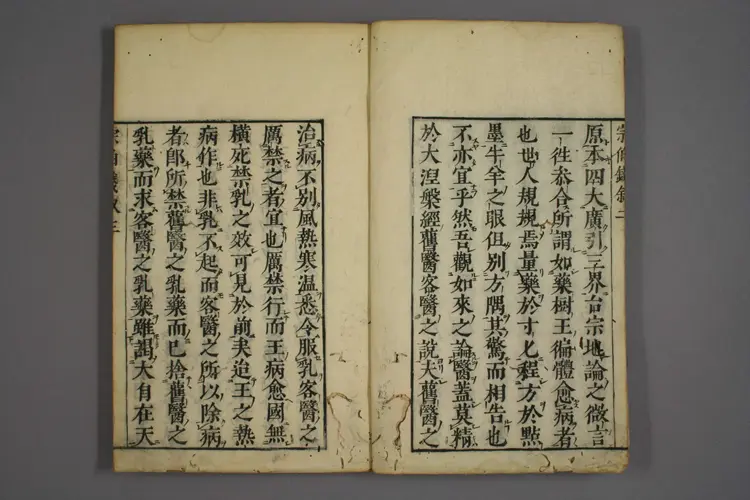 原本四大廣引三界台宗地論之微言
一徃叅合所謂如藥樹王徧體愈病者
也世人規規焉量藥於寸匕程方於點
墨牛羊之眼但別方隅其驚而相告也
不亦宜乎然吾觀如來之論醫蓋莫精
於大涅槃經舊醫客醫之說夫舊醫之
治病不別風熱寒温悉令服乳客醫之
厲禁之者宜也厲禁行而王病愈國無
橫死禁乳之效可見於前矣迨王之熱
病作也非乳不起而客醫之所以除病
者卽所禁舊醫之乳藥而已捨舊醫之
乳藥而求客醫之乳藥雖謁大自在天